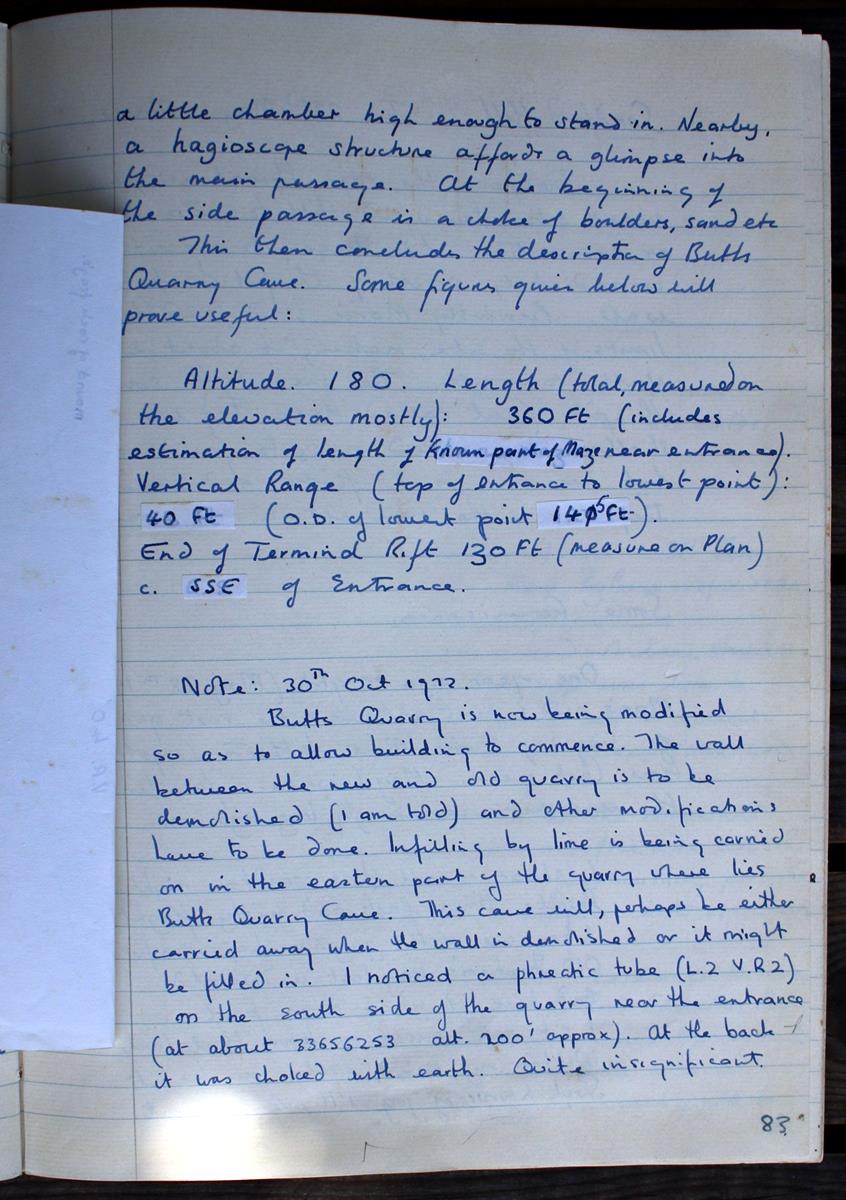 a little chamber high enough to stand in. Nearby,
a hagioscope structure affords a glimpse into
the main passage. At the beginning of
the side passage is a choke of boulders, sand etc
This then concludes the description of Butts
Quarry Cave. Some figures given below will
prove useful:
Altitude. 180. Length (total, measured on
the elevation mostly): 360 Ft (includes
estimation of length of Known part of Maze near entrance).
Vertical Range (top of entrance to lowest point):
40 Ft (O.D. of lowest point 145 Ft).
End of Terminal Rift 130 Ft (measure on Plan)
c. SSE of Entrance.
Note: 30th Oct 1972.
Butts Quarry is now being modified
so as to allow building to commence. The wall
between the new and old quarry is to be
demolished (I am told) and other modifications
have to be done. Infilling by lime is being carried
on in the eastern part of the quarry where lies
Butts Quarry Cave. This cave will, perhaps be either
carried away when the wall is demolished or it might
be filled in. I noticed a phreatic tube (L.2 V.R 2)
on the south side of the quarry near the entrance
(at about 33656253 alt. 200' approx). At the back
it was choked with earth. Quite insignificant.
83